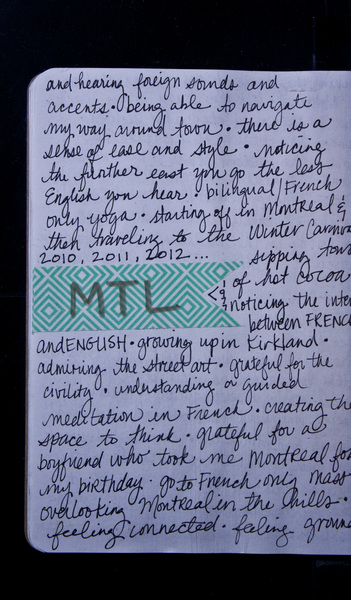 and hearing foreign sounds and
accents • being able to navigate
my way around town • there is a
sense of ease and style • noticing
the further east you go the less
English you hear • bilingual/French
only yoga • starting off in Montreal &
then traveling to the Winter Carniva
2010, 2011, 2012... sipping
of hot cocoa
MTL
noticing the inte
between FRENC
and ENGLISH • growing up in Kirkland •
admiring the street art • grateful for the
civility • understanding a guided
meditation in French • creating the
space to think • grateful for a
boyfriend who took me Montreal for
my birthday • go to French only mass
overlooking Montreal in the hills •
feeling connected • feeling groun